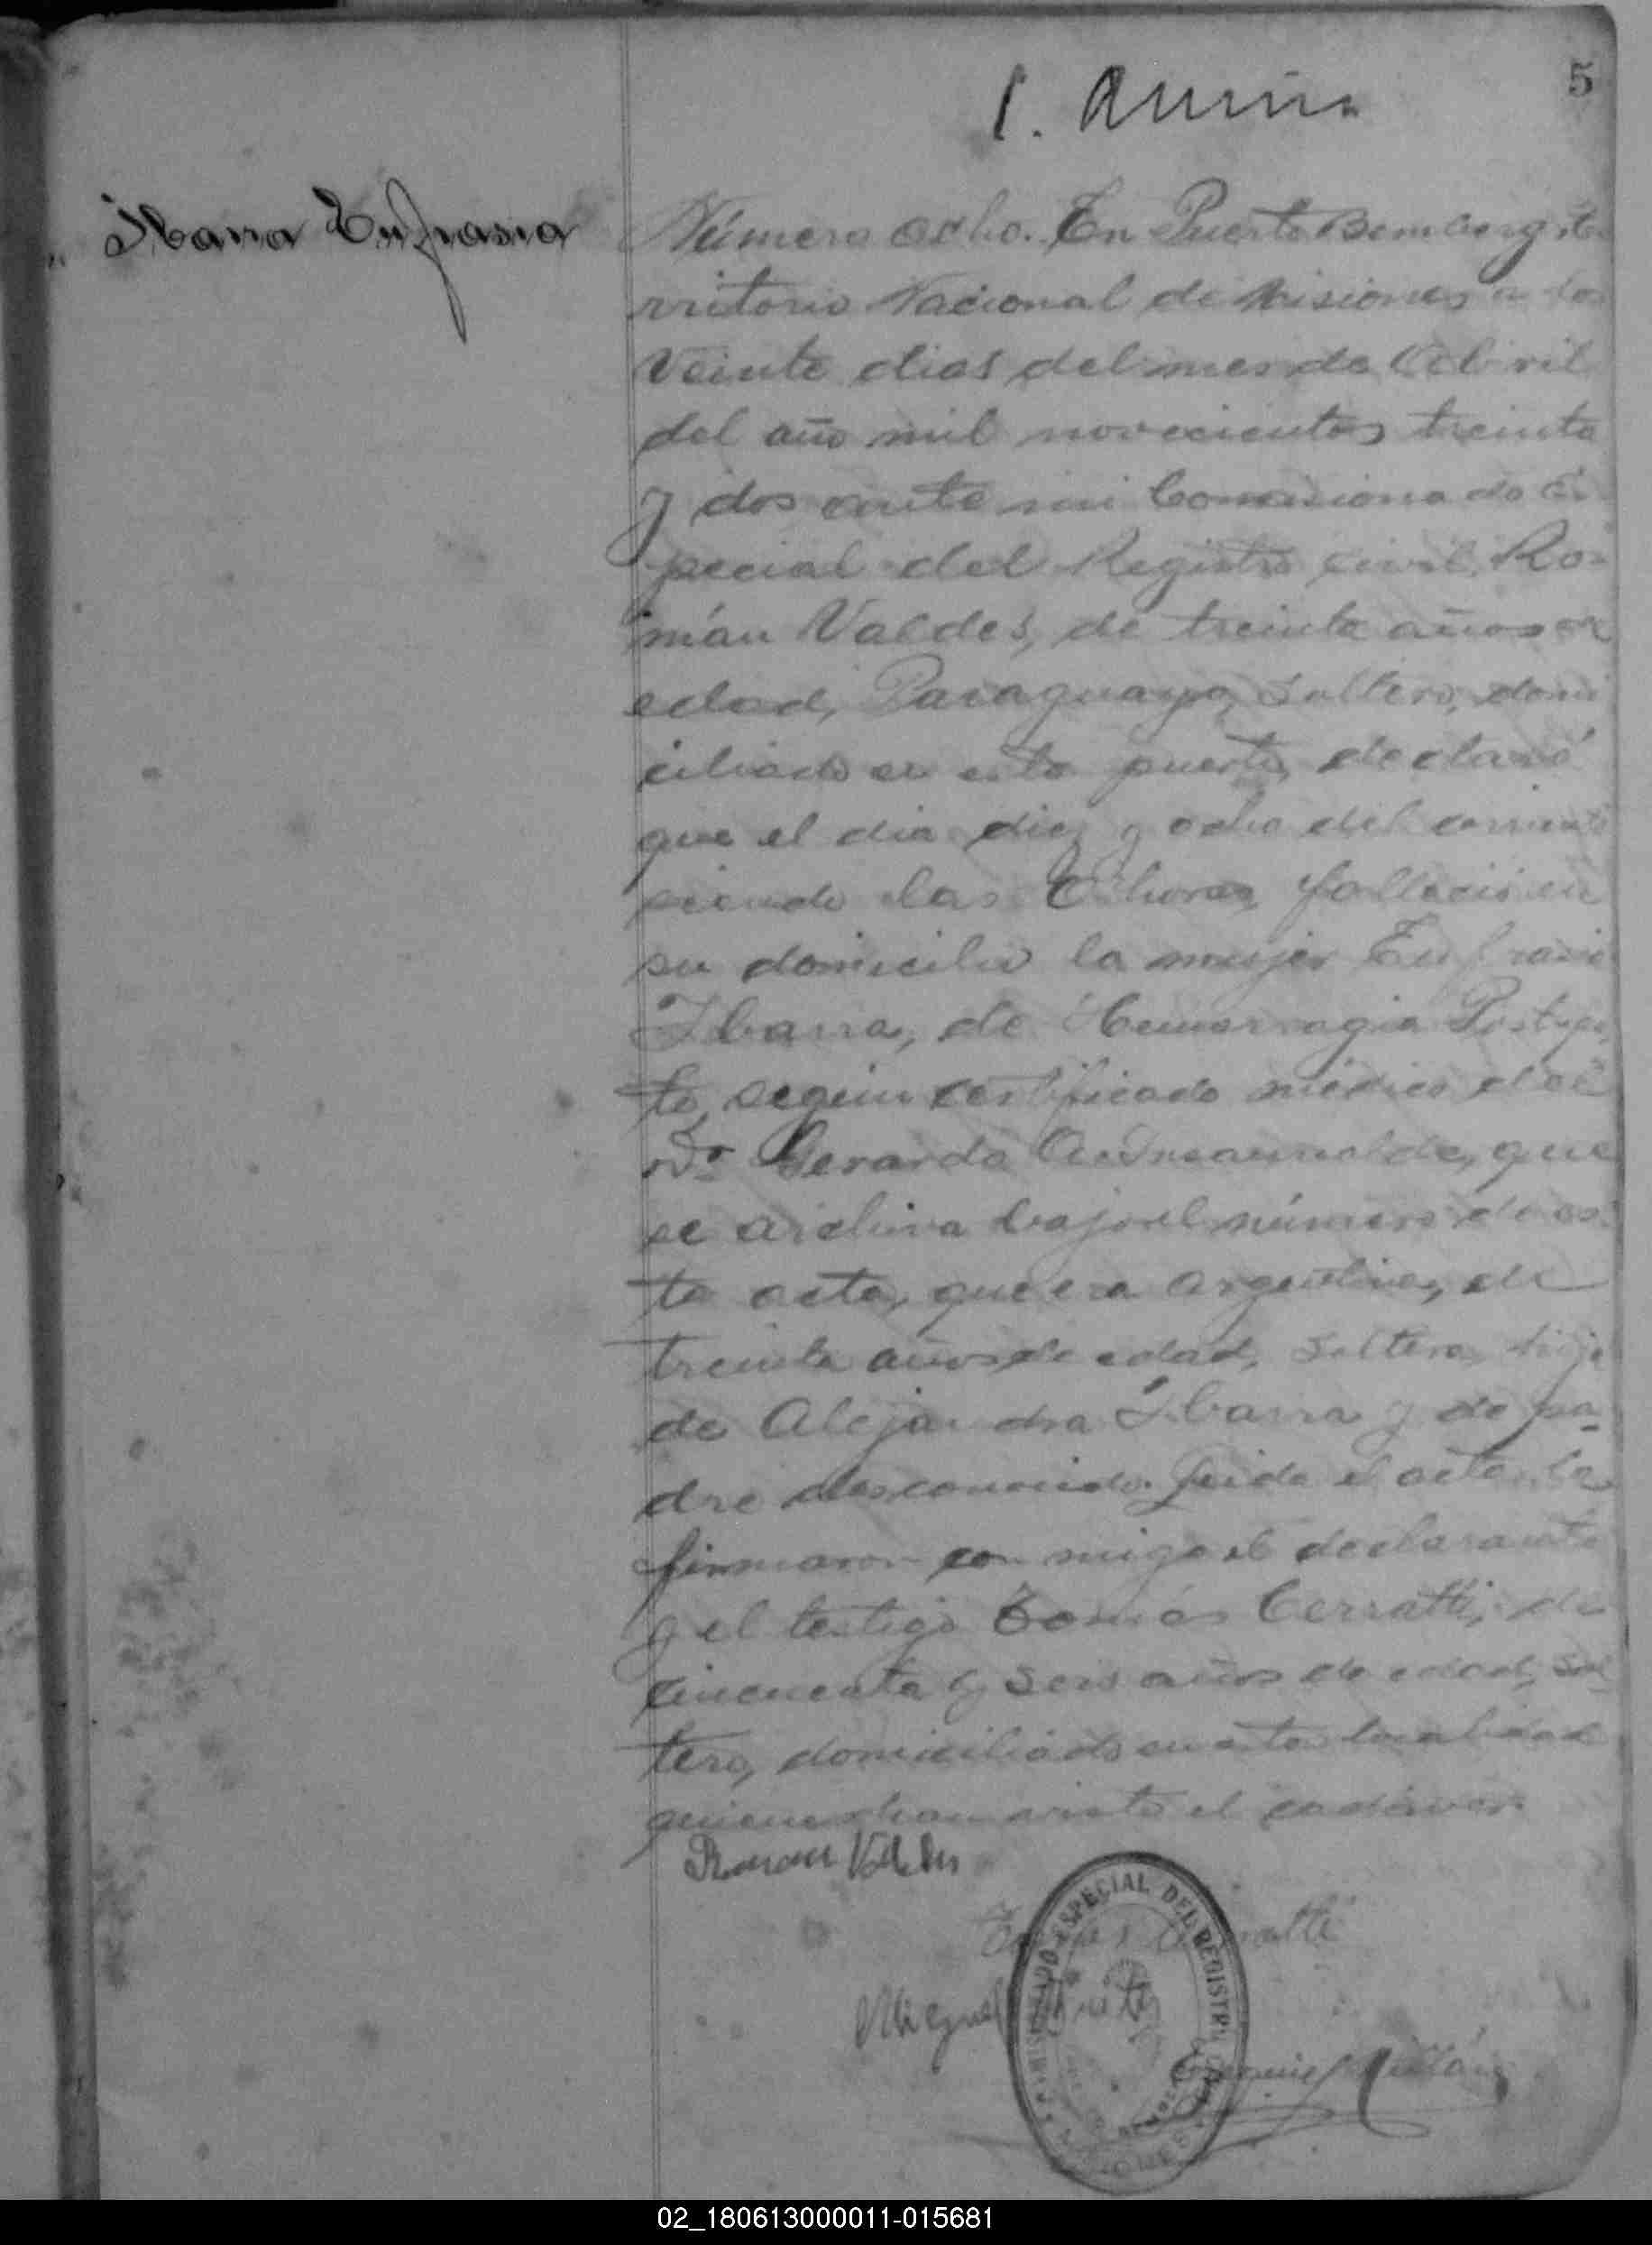 5
Ibarra Eufrasia
Número ocho. En Puerto Bemberg, te
rritorio Nacional de Misiones a los
Veinte dias del mes de Abril
del año mil novecientos treinta
y dos ante mi Comisionado Es
pecial del Registro civil, Ro-
mán Valdes, de treinta años de
edad, Paraguayo, soltero, domi
ciliado en este puerto, declaró
que el dia diez y ocho del corriente
siendo las horas, falleció en
su domicilio la mujer Eufrasia
Ibarra, de Hemorragia Postpar
to, según certificado médico del
Dr Gerardo que
se archiva bajo el número de es
ta acta, que era argentina, de
treinta años de edad, soltera, hija
de Alejandra Ibarra y de pa-
dre desconocido. Leida el acta, la
firmaron con migo el declarante
y el testigo Tomás Cerratti, de
cincuenta y seis años de edad, sol
tero, domiciliado en esta localidad
quienes han visto el cadáver.
Roman Valdes
Tomas Cerratti
Miguel
ESPECIAL DEL REGISTRO CIVIL
02_180613000011-015681